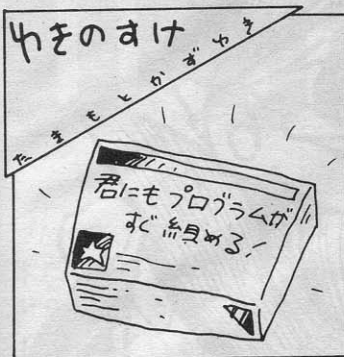 ゆきのすけ
たまもとかずゆき
君にもプログラムが
すぐ組める!